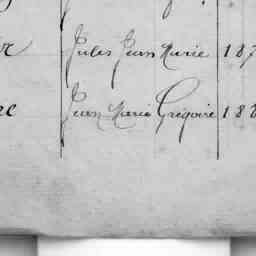 Jules Jean Marie 187
Jean Marie Grégoire 18